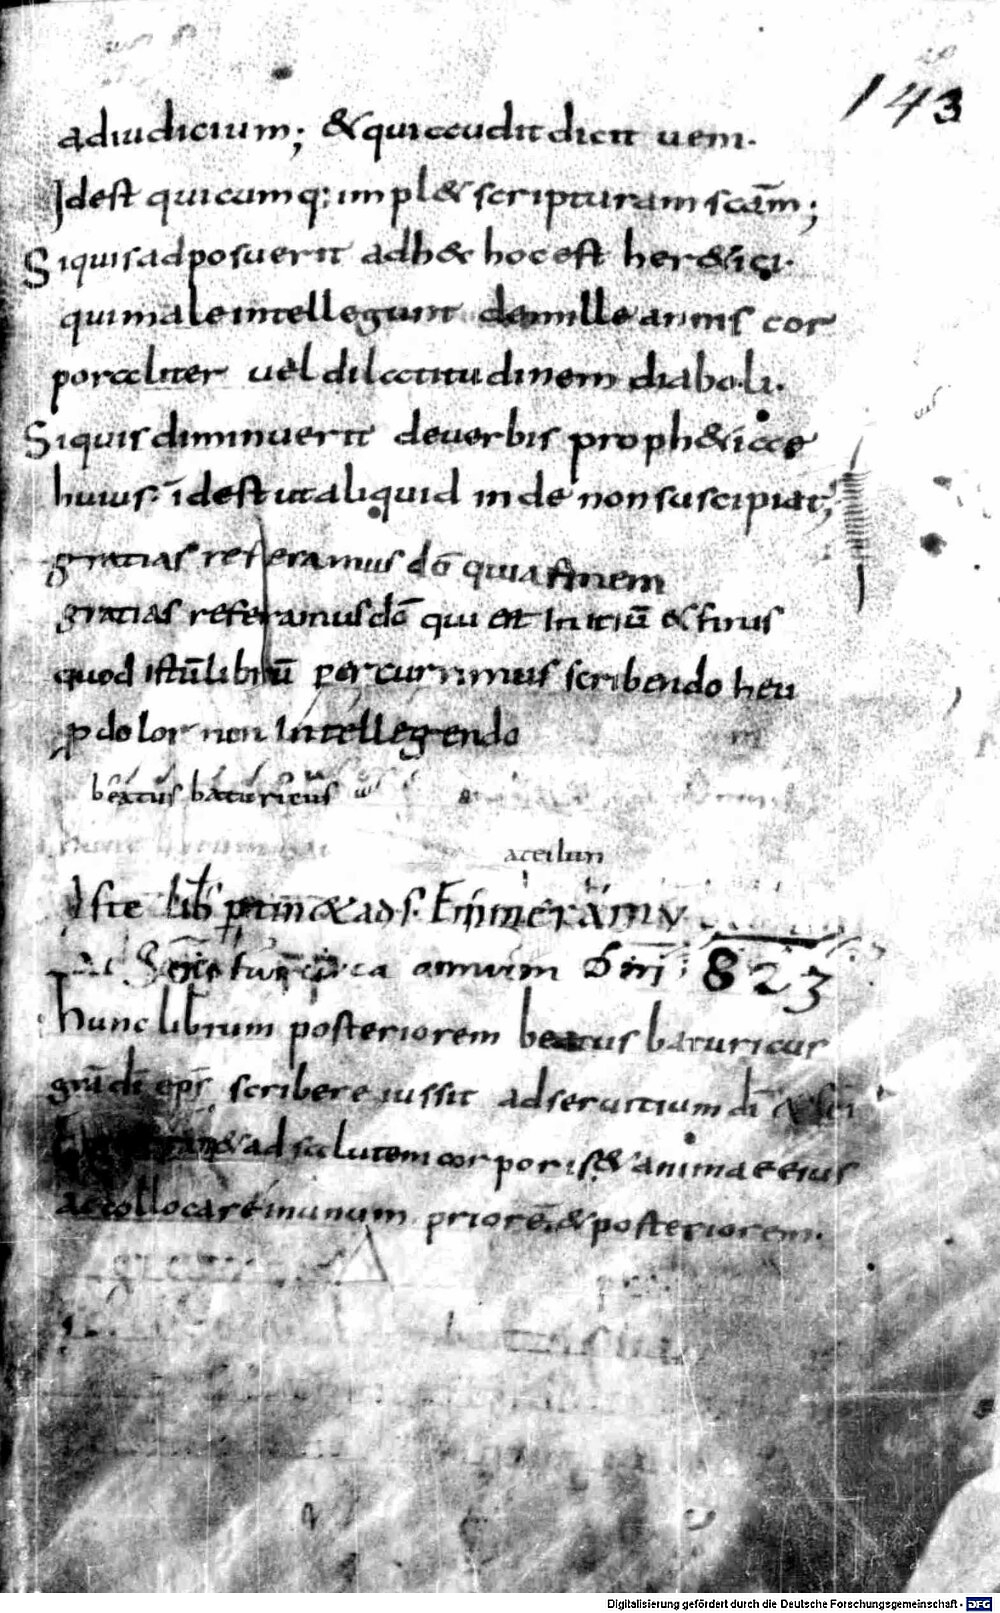 143
adiudicium; & qui audit dicit veni.
Idest quicumq; impl& scripturam scām;
Siquis adposuerit adh&c hoc est her&ici.
qui male intellegunt demille annis cor
poraliter vel dilatitudinem diaboli.
Siquis diminuerit deverbis proph&iae
huius. idest ut aliquid inde non suscipiat;
gratias referamus dō quia finem
gratias referamus dō qui est Initiū & finis
quod istū librū percurrimus scribendo heu
p dolor non Intellegendo
beatus baturicus
Iste lib ptin& ad S. Emmeramū
circa annum Dni 823
Hunc librum posteriorem beatus baturicus
epī scribere iussit adservitium dī & sci
& ad salutem corporis & animae eius
ac collocare inunum priorē & posteriorem.
Digitalisierung gefördert durch die Deutsche Forschungsgemeinschaft - DFG